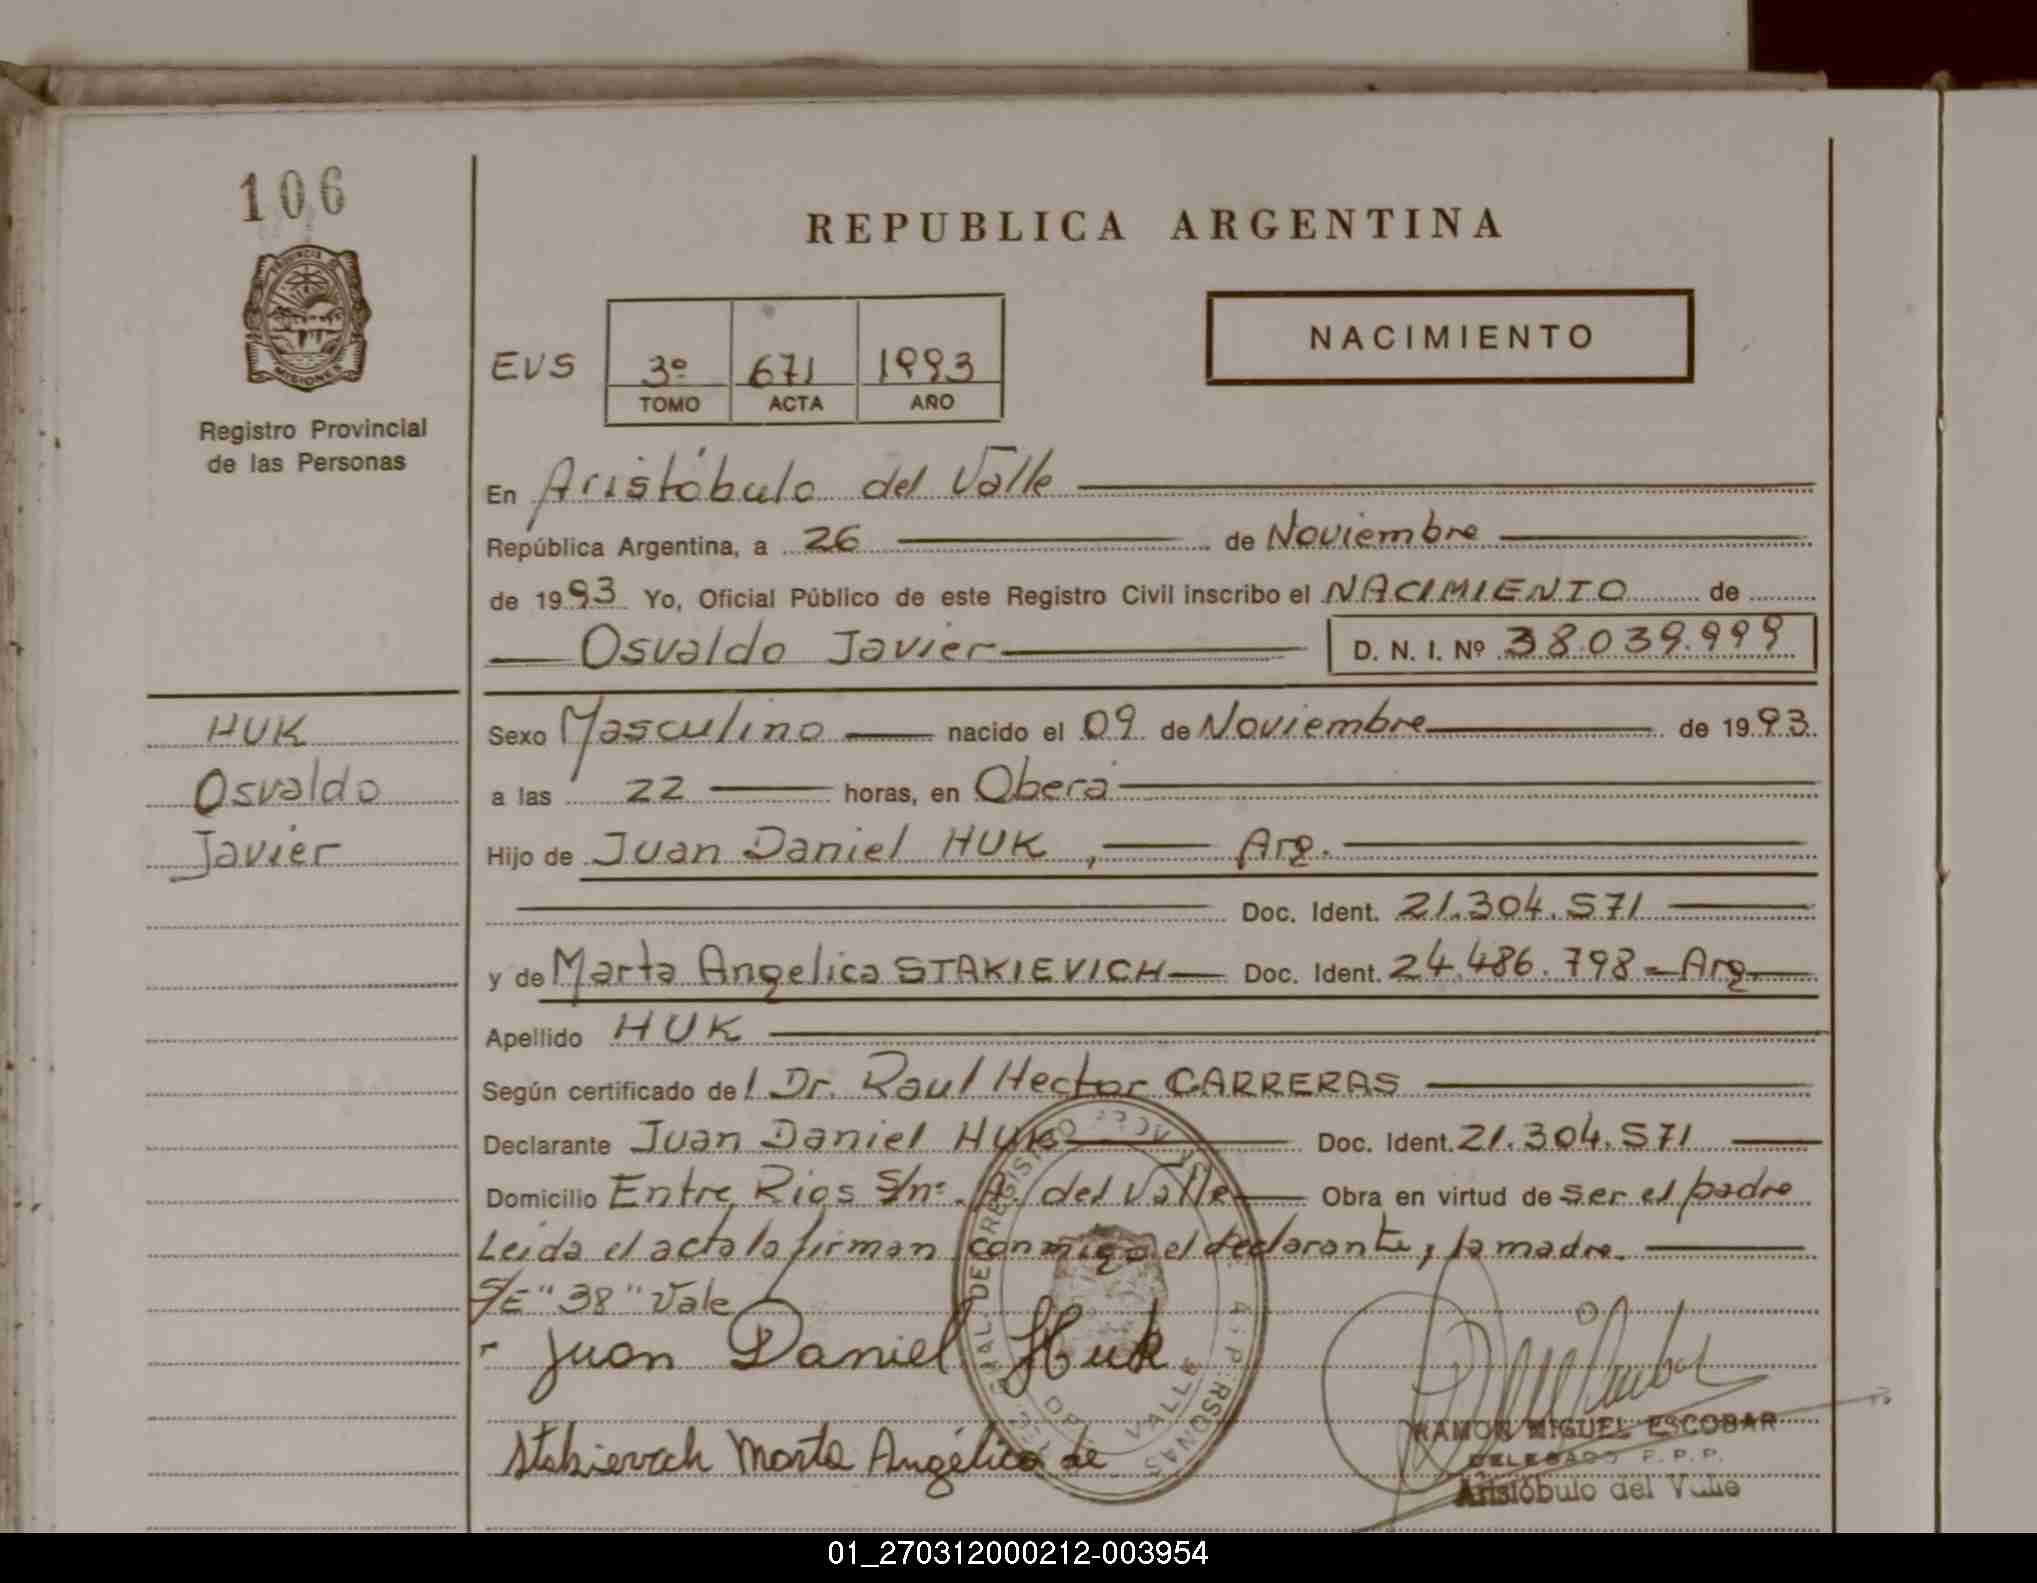 106
REPUBLICA ARGENTINA
PROVINCIA DE
MISIONES
Registro Provincial
de las Personas
NACIMIENTO
EVS 3º 671 1993
TOMO ACTA AÑO
En Aristóbulo del Valle
República Argentina, a 26 de Noviembre
de 1993 Yo, Oficial Público de este Registro Civil inscribo el NACIMIENTO de
Osvaldo Javier D. N. I. Nº 38.039.999
HUK
Osvaldo
Javier
Sexo Masculino nacido el 09 de Noviembre de 1993.
a las 22 horas, en Oberá
Hijo de Juan Daniel HUK, Arg.
Doc. Ident. 21.304.571
y de Marta Angelica STAKIEVICH Doc. Ident. 24.486.798 - Arg.
Apellido HUK
Según certificado del Dr. Raul Hector CARRERAS
Declarante Juan Daniel HUK Doc. Ident. 21.304.571
Domicilio Entre Rios S/nº. A. del Valle Obra en virtud de ser el padre
Leida el acta la firman conmigo el declarante y la madre.
S/E "38" Vale
Juan Daniel Huk
Stakievich Marta Angélica de
RAMON MIGUEL ESCOBAR
DELEGADO F. P. P.
Aristóbulo del Valle
01_270312000212-003954